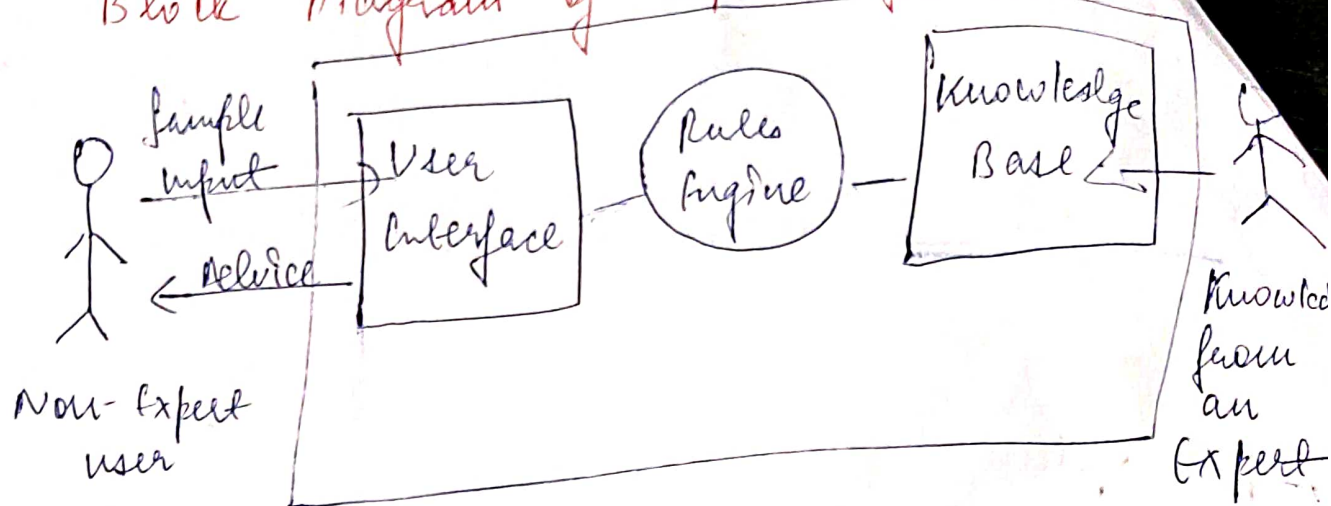 Block Diagram of
Sample
input
User
Interface
Advice
Rules
Engine
Knowledge
Base
Non-Expert
user
Knowled
from
an
Expert